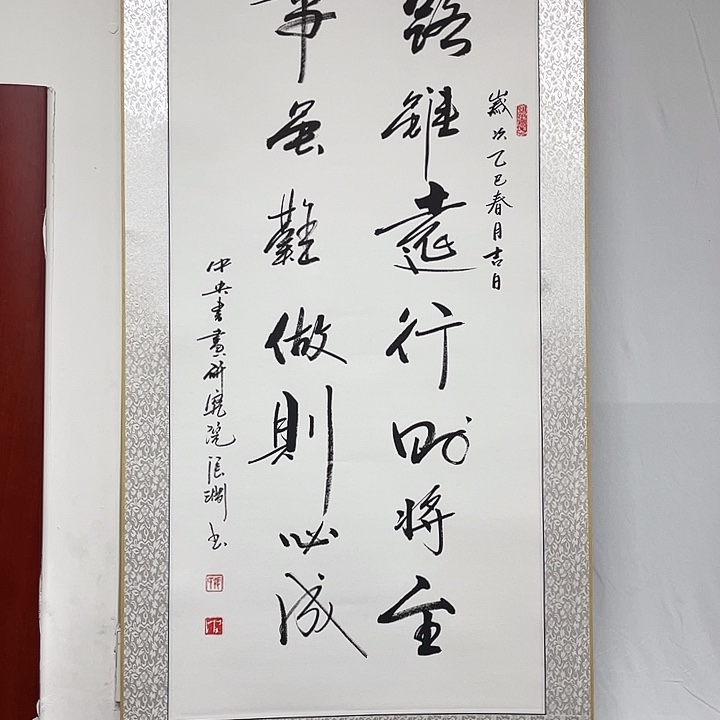 歲次乙巳春月吉日
路雖遠行則將至
事虽難做則必成
中央書畫研究院張淵書